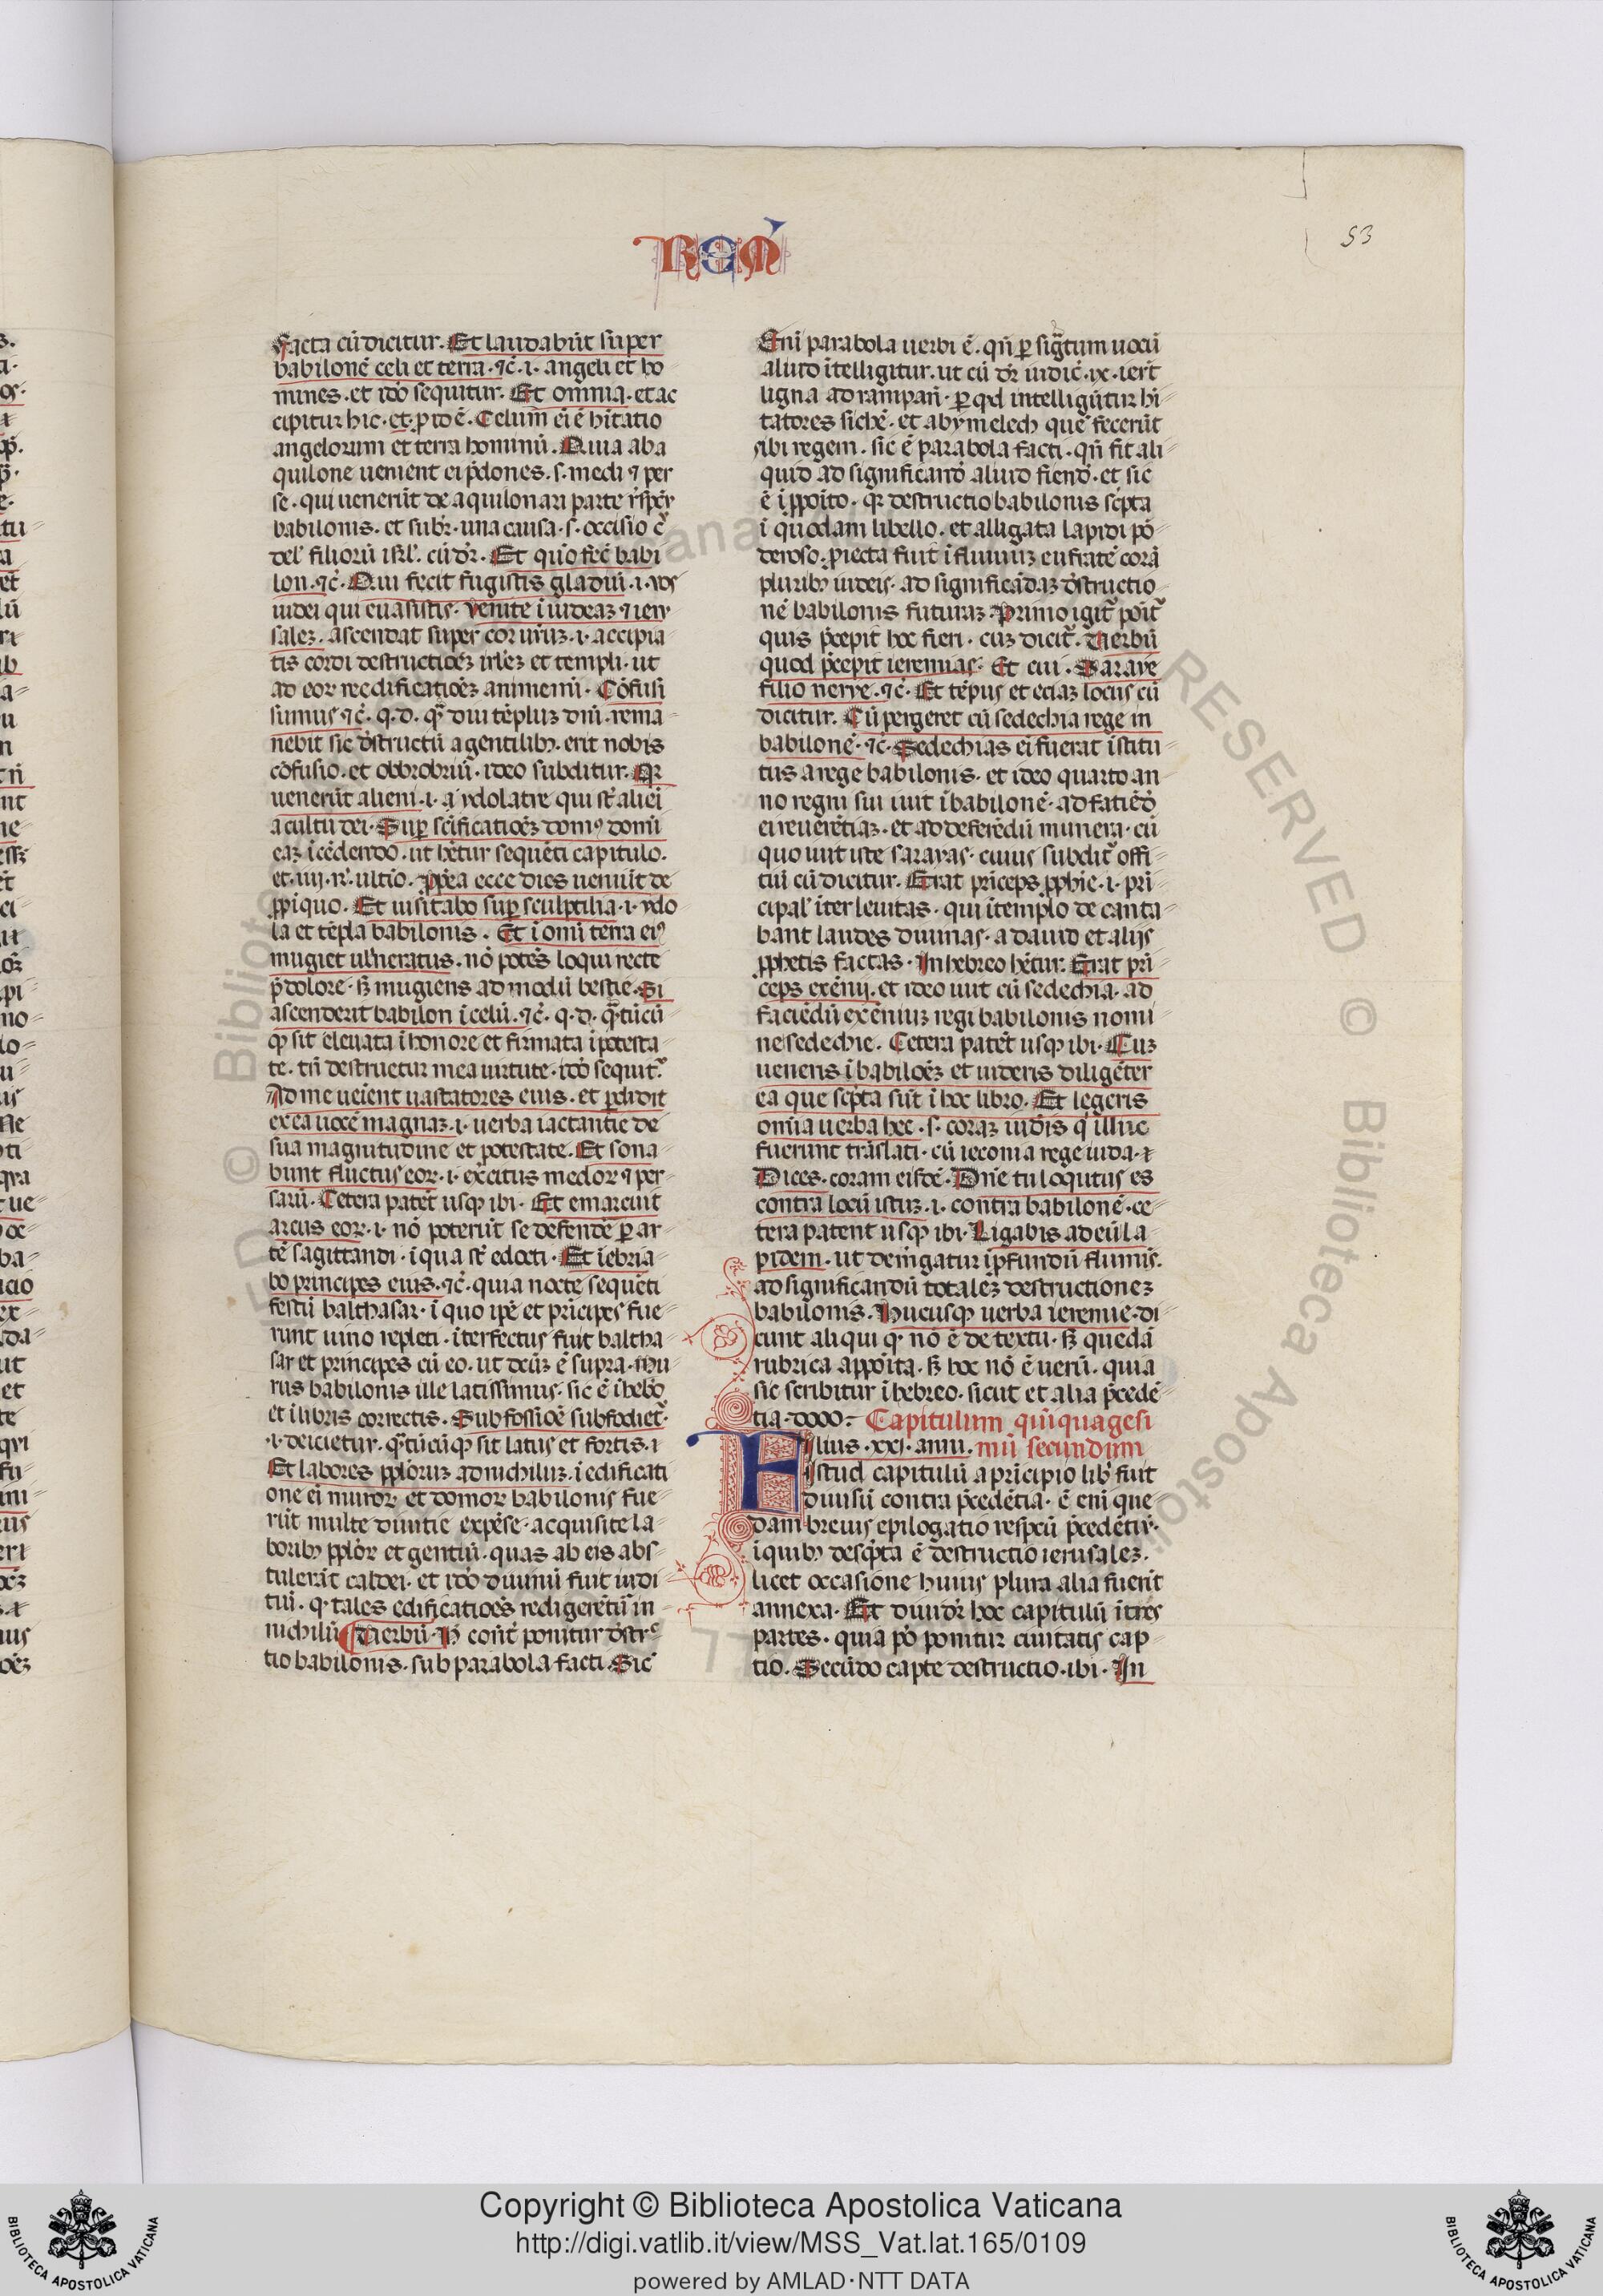 REM̄
53
facta cū dicitur. Et laudabūt super
babilonē celi et terra. ⁊c̄. i. angeli et ho
mines. et idō sequitur. Et omnia. et ac
cipitur hic. et. p̱ id ē. Celum ei ē hitatio
angelorum et terra hominū. Quia ab a
quilone uenient ei p̄dones. s. medi ⁊ per
se. qui uenerūt de aquilonari parte
babilonis. et subr̄. una causa. s. occisio
del' filiorū isrl'. cū dr̄. Et quō fec̄ babi
lon. ⁊c̄. Qui fecit fugistis gladiū. i. uos
iudei qui euasistis. Venite ī iudeaȝ ⁊ ieru
saleȝ. ascendat super cor ur̄uȝ. i. accipia
tis cordi destructiōeȝ irl'eȝ et templi. ut
ad eor reedificatiōeȝ animemī. Cōfusi
sumus ⁊c̄. q. d. qᷓ diu tēpluȝ dnī. rema
nebit sic dstructū a gentilib₉. erit nobis
cōfusio. et obbrobriū. ideo subditur. Qr
uenerūt alieni. i. ydolatre qui st̄ aliei
a cultu dei. Sup̱ scīficatiōeȝ dom₉ domī
eaȝ īcēdendo. ut hētur sequēti capitulo.
et. iiij. r̄. ultio. ꝓp̱ea ecce dies ueniūt de
ꝓpiquo. Et uisitabo sup̱ sculptilia. i. ydo
la et tēpla babilonis. Et ī omī terra ei₉
mugiet uln̄eratus. nō potēs loqui recte
p̄ dolore. sȝ mugiens ad modū bestie. Si
ascenderit babilon ī celū. ⁊c̄. q. d. qᷓtūcū
qȝ sit eleuata ī honore et firmata ī potesta
te. tn̄ destruetur mea uirtute. idō sequit᷑.
Ad me ueīent uastatores eius. et p̱didit
ex ea uocē magnaȝ. i. uerba iactantie de
sua magnitudine et potestate. Et sona
bunt fluctus eor. i. exc̄itus medor ⁊ per
sarū. Cetera patēt usqȝ ibi. Et emarcuit
arcus eor. i. nō poterūt se defendē p̱ ar
tē sagittandi. ī qua st̄ edocti. Et īebria
bo principes eius. ⁊c̄. quia nocte sequēti
festū balthasar. ī quo ip̄e et prīcipes fue
runt uino repleti. īterfectus fuit baltha
sar et principes cū eo. ut dc̄uȝ ē supra. Mu
rus babilonis ille latissimus. sic ē ī heb̄o
et ī libris correctis. Subfossiōe subfodiet᷑.
.i. deicietur. qᷓtūcūqȝ sit latus et fortis. i
Et labores ppl̄oruȝ ad nichiluȝ. ī edificati
one ei muror et domor babilonis fue
rūt multe diuitie expēse. acquisite la
borib₉ ppl̄or et gentiū. quas ab eis abs
tulerāt caldei. et idō diuinū fuit iudi
tiū. qꝫ tales edificatiōes redigerētur in
nichilū ¶ Verbū. H̄ coñt̄ ponitur dstrᶜ
tio babilonis. sub parabola facti. Sic̄
Eni parabola uerbi ē. qn̄ p̱ sigᷓtum uocū
aliud ītelligitur. ut cū dr̄ iudic̄. ix. ier̄t
ligna ad rampan̄. p̱ qd intelligūtur hi
tatores sichē. et abymelech quē fecerūt
sibi regem. sic ē parabola facti. qn̄ fit ali
quid ad significandō aliud fiendō. et sic
ē ī ꝓpoīto. qr destructio babilonis sc̄pta
ī quodam libello. et alligata lapidi pō
deroso. p̄iecta fuit ī fluuiuȝ eufratē corā
plurib₉ iudeis. ad significādaȝ dstructio
nē babilonis futuraȝ. Primo igit᷑ poīt᷑
quis p̄cepit hoc fieri. cuȝ dicit᷑. Verbū
quod p̄cepit ieremias. Et cui. Saraye
filio nerye. ⁊c̄. Et tēpus et eciaȝ locus cū
dicitur. Cū pergeret cū sedechia rege in
babilonē. ⁊c̄. Sedechias ei fuerat īstitu
tus a rege babilonis. et ideo quarto an
no regni sui iuit ī babilonē. ad fatiēdō
ei reuerētiaȝ. et ad deferēdū munera. cū
quo iuit iste sarayas. cuius subdit᷑ offi
tiū cū dicitur. Erat prīceps ꝓphīe. i. pri
cipal' īter leuitas. qui ī templo de canta
bant laudes diuinas. a dauid et alijs
ꝓphetis factas. In hebreo hētur. Erat pri
ceps exenij. et ideo iuit cū sedechia. ad
faciēdū exēniuȝ regi babilonis nomi
ne sedechie. Cetera patēt usqȝ ibi. Cuȝ
ueneris ī babilōeȝ et uideris diligēter
ea que sc̄pta sūt ī hoc libro. Et legeris
omīa uerba hec. s. coraȝ iudīs q̄ illuc
fuerunt trāslati. cū ieconia rege iuda. ⁊
Dices. coram eisdē. Dn̄e tu loqutus es
contra locū istuȝ. i. contra babilonē. ce
tera patent usqȝ ibi. Ligabis ad eū la
pidem. ut demgatur ī ꝓfundū flumīs.
ad significandū totaleȝ destructioneȝ
babilonis. Hucusqȝ uerba ieremie. di
cunt aliqui qꝫ nō ē de textu. sȝ quedā
rubrica appoīta. sȝ hoc nō ē uerū. quia
sic scribitur ī hebreo. sicut et alia p̄cedē
tia. Capitulum quīquagesi
Filius .xxj. anni. mū secundum
Istud capitulū a prīcipio lib̄ fuit
diuisū contra p̄cedētia. ē enī que
dam breuis epilogatio respcū p̄cedētiū.
ī quib₉ desc̄pta ē destructio ierusaleȝ.
licet occasione huius plura alia fuerīt
annexa. Et diuidr̄ hoc capitulū ī tres
partes. quia pō ponitur ciuitatis cap
tio. Secūdo capte destructio. ibi. In
Copyright © Biblioteca Apostolica Vaticana
http://digi.vatlib.it/view/MSS_Vat.lat.165/0109
powered by AMLAD·NTT DATA
BIBLIOTECA APOSTOLICA VATICANA
BIBLIOTECA APOSTOLICA VATICANA